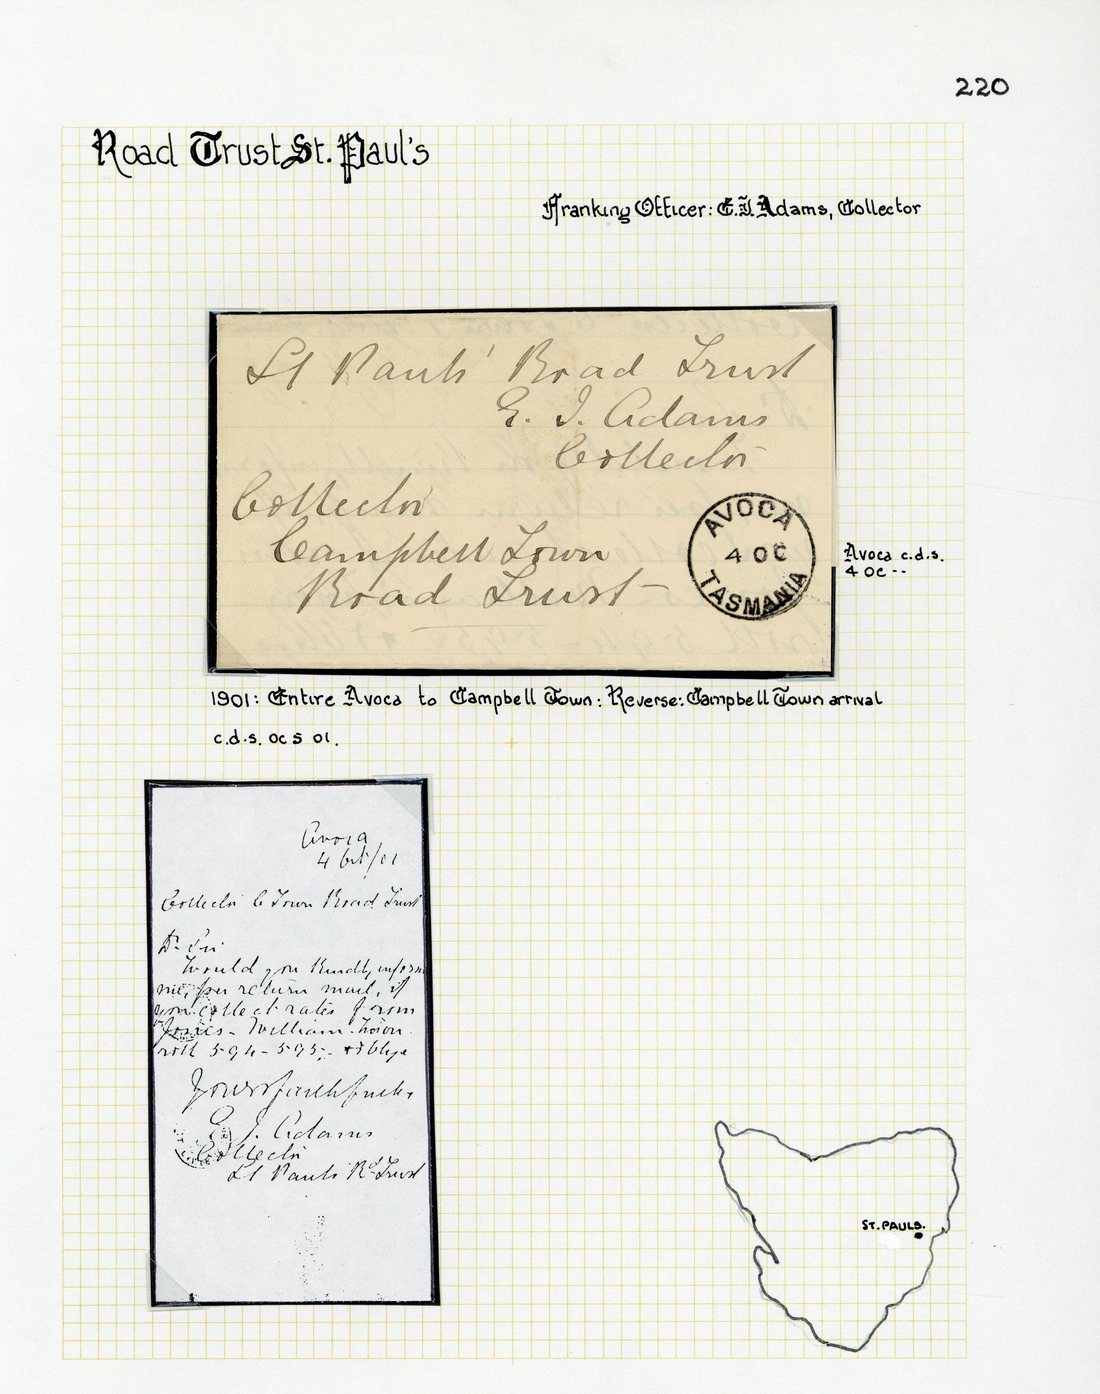 220
Road Trust St. Paul's
Franking Officer: E.J. Adams, Collector
St Pauls' Road Trust
E. J. Adams
Collector
Collector
Campbell Town
Road Trust
AVOCA
4 OC
TASMANIA
Avoca c.d.s.
4 OC --
1901: Entire Avoca to Campbell Town: Reverse: Campbell Town arrival
c.d.s. OC 5 01.
Avoca
4 Oct/01
Collector C Town Road Trust
Dr Sir
Would you kindly inform
me, per return mail, if
you collect rates from
Jones - William
roll 594-595, & oblige
Yours faithfully
E. J. Adams
Collector
St Pauls Rd Trust
ST. PAULS.